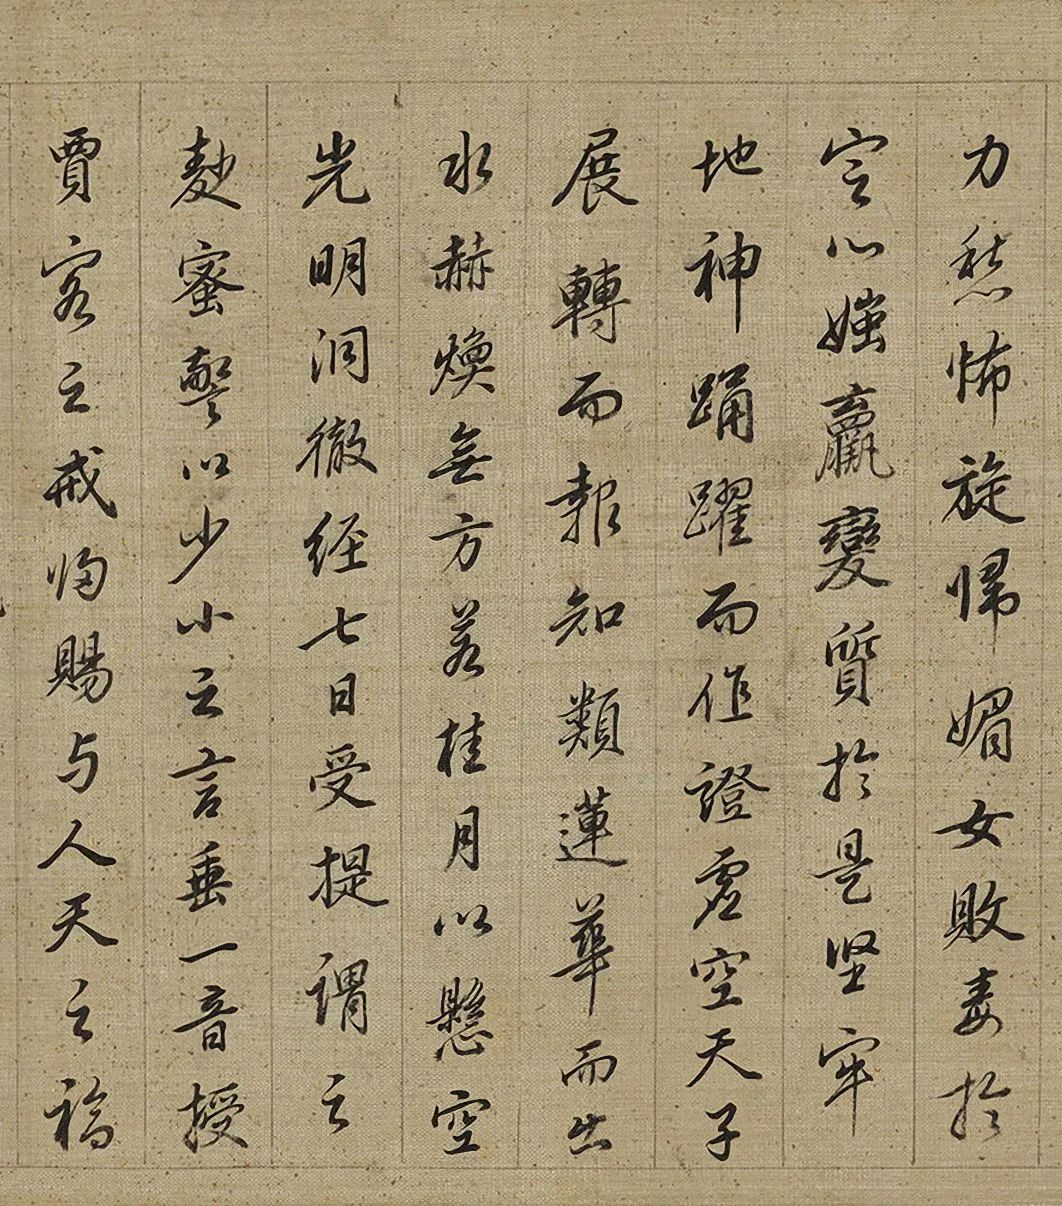 力愁怖旋歸媚女敗毒於
定心媸羸變質於是堅牢
地神踊躍而作證虛空天子
展轉而報知類蓮華而出
水赫煥無方若桂月以懸空
光明洞徹經七日受提謂之
麨蜜警以少小之言垂一音授
賈客之戒歸賜与人天之福